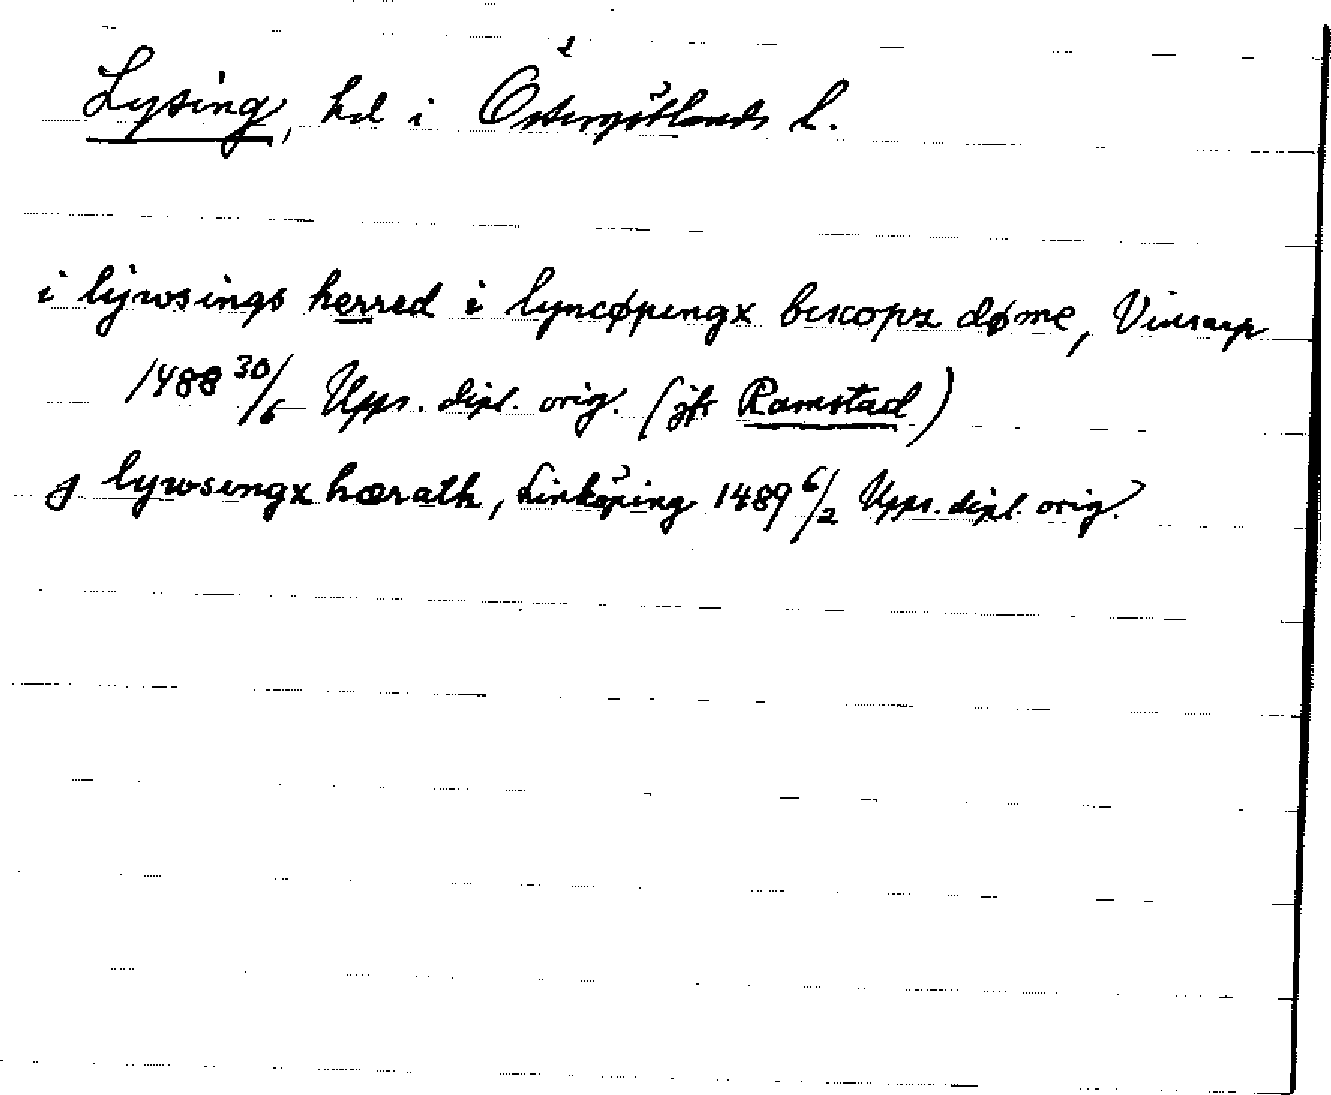 Lysing, hd i Östergötlands l.
i lÿwsings herred i lyncøpingx biscops døme,
1488 30/6 Upps. dipl. orig. (jfr Ramstad)
j lywsingx hærath, Linköping 1489 6/2 Upps. dipl. orig.